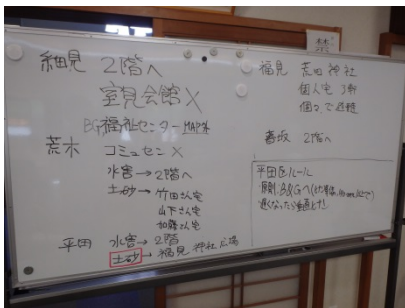 細見 2階へ
室見会館 X
B&G 福祉センター MAP外
荒木 コミュセン X
水害→2階へ
土砂→竹田さん宅
山下さん宅
加藤さん宅
平田 水害→2階
土砂→稲見 神社 広場
福見 荒田神社
個人宅 3軒
個々で避難
2階へ
平田区ルール
原則、B&Gへ
遅くなったら垂直